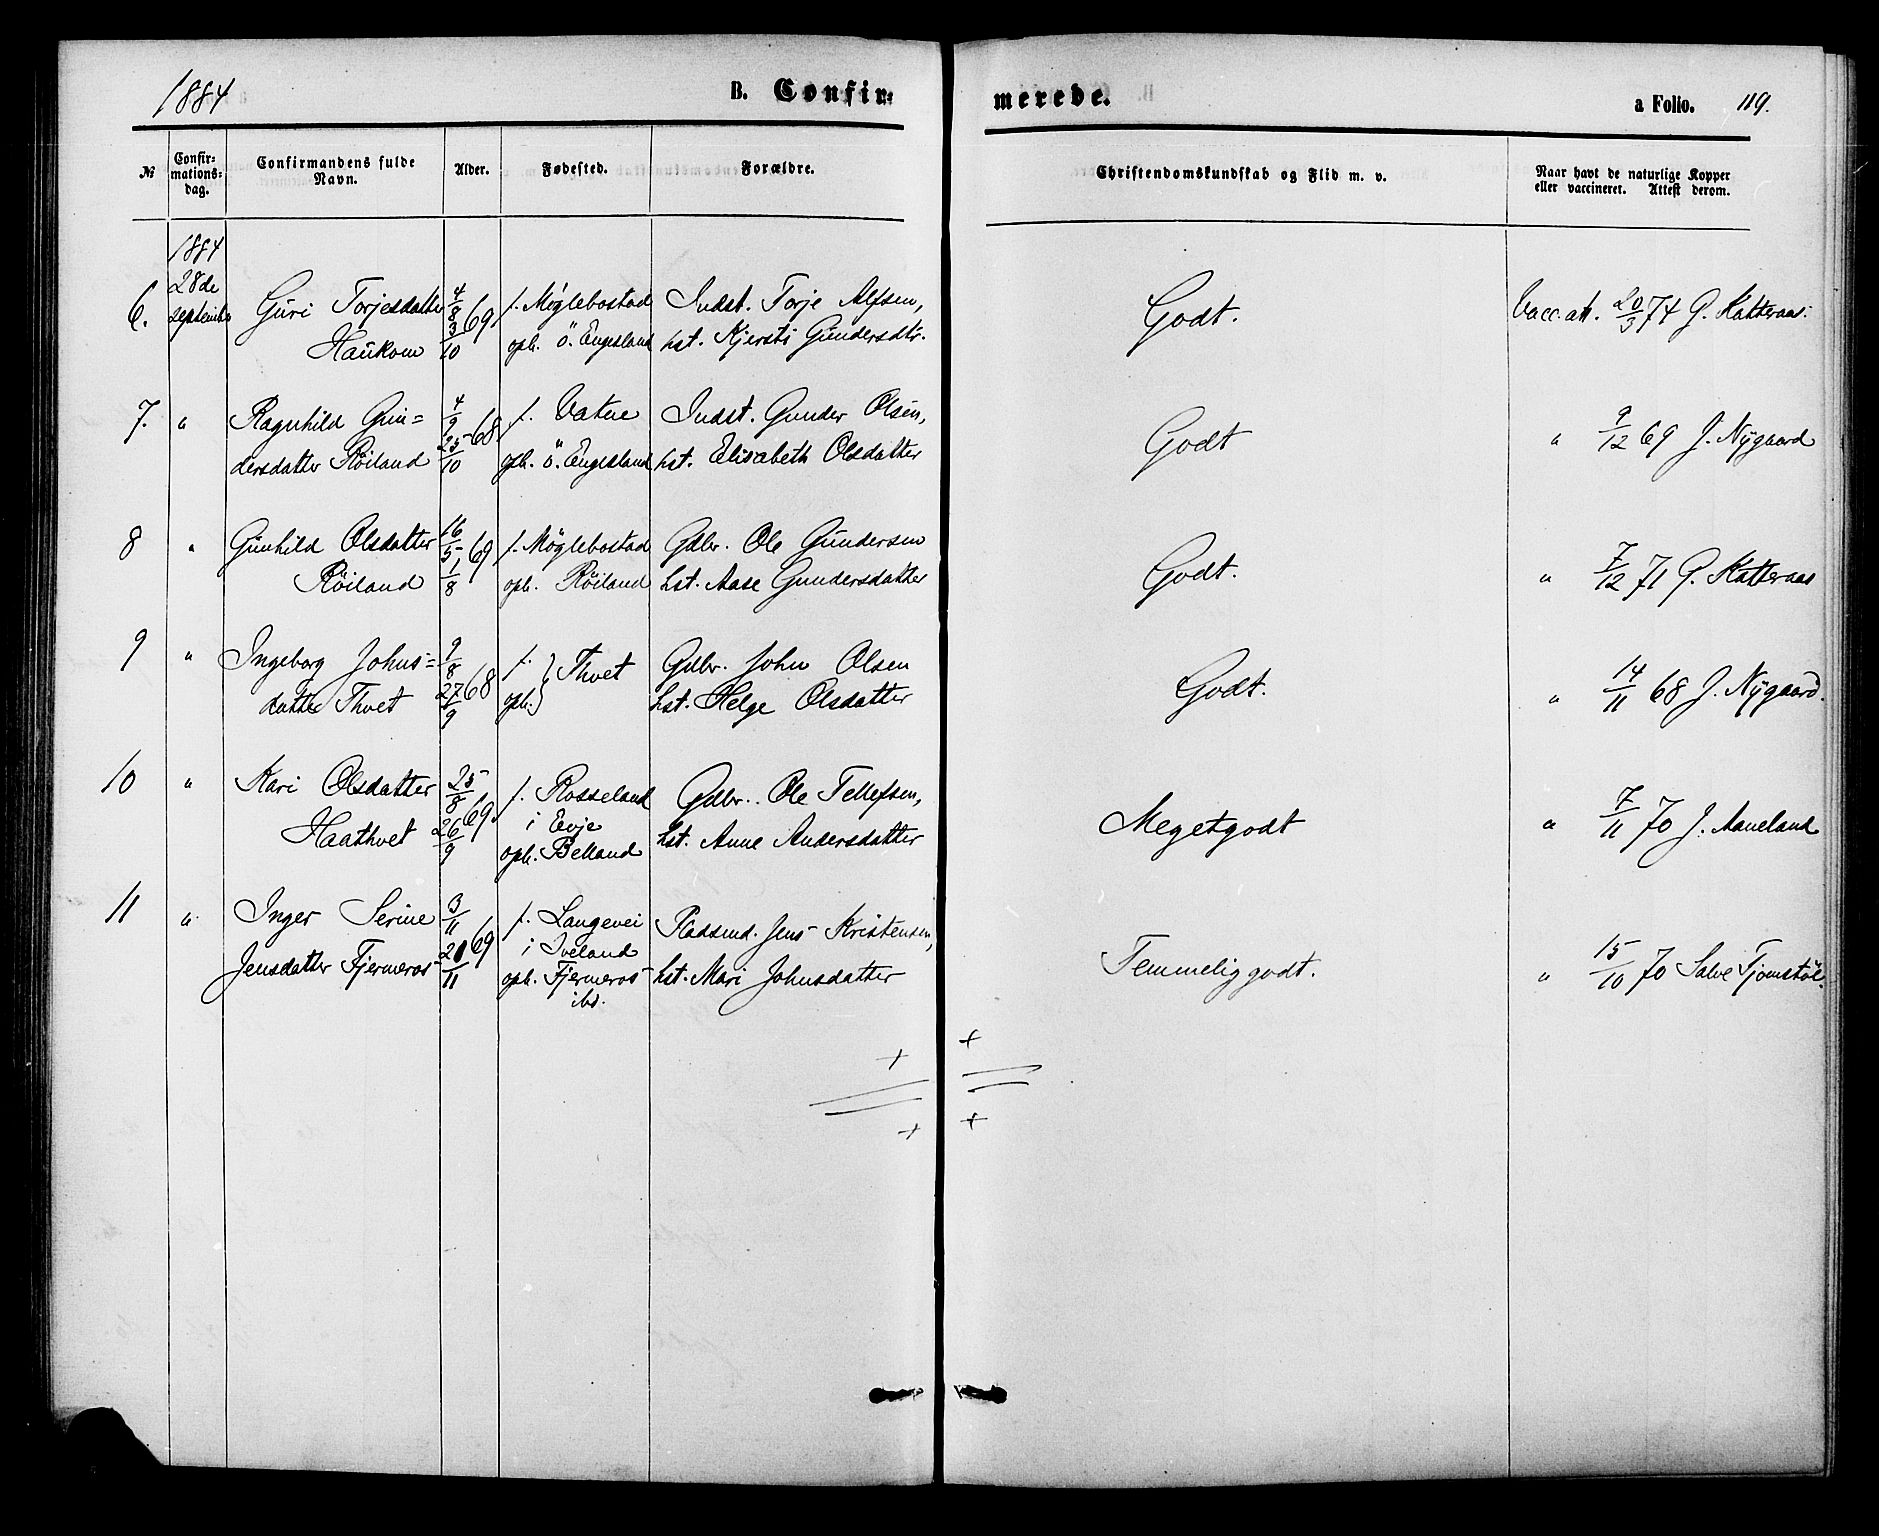 1884
B. Confir=
merede.
a Folio. 119.
№
Confir=
mations=
dag.
Confirmandens fulde
Navn.
Alder.
Fødested.
Forældre.
Christendomskundskab og Flid m. v.
Naar havt de naturlige Kopper
eller vaccineret. Attest derom.
1884
6. 28de September Guri Torjesdatter 4/8 69 f. Möglebostad Indst. Torje Alfsen, Godt. Vacc. att. 20/3 74 G. Katteraas.
Haukom 3/10 opb. ö. Engesland hst. Kjersti Gundersdtr.
7. " Ragnhild Gun= 4/9 68 f. Vatne Indst. Gunder Olsen, Godt " 9/12 69 J. Nygaard
dersdatter Röiland 25/10 opb. ö. Engesland hst. Elisabeth Olsdatter
8 " Gunhild Olsdatter 16/5 69 f. Möglebostad Gdbr. Ole Gundersen Godt. " 7/12 71 G. Katteraas
Röiland 1/8 opb. Röiland hst. Aase Gundersdatter
9 " Ingeborg Johns= 9/8 68 f. Thvet Gdbr. John Olsen Godt. " 14/11 68 J. Nygaard.
datter Thvet 27/9 opb. hst. Helge Olsdatter
10 " Kari Olsdatter 25/8 69. f. Rosseland Gdbr. Ole Tellefsen, Megetgodt " 7/11 70 J. Aaneland
Haathvet 26/9 i Evje hst. Anne Andersdatter
opb. Belland
11 " Inger Serine 3/11 69 f. Langevei Pladsmd. Jens Kristensen, Temmelig godt. " 15/10 70 Salve Tjomstöl.
i Iveland
Jensdatter Fjermeros 21/11 opb. Fjermeros hst. Mari Johnsdatter
ibd.